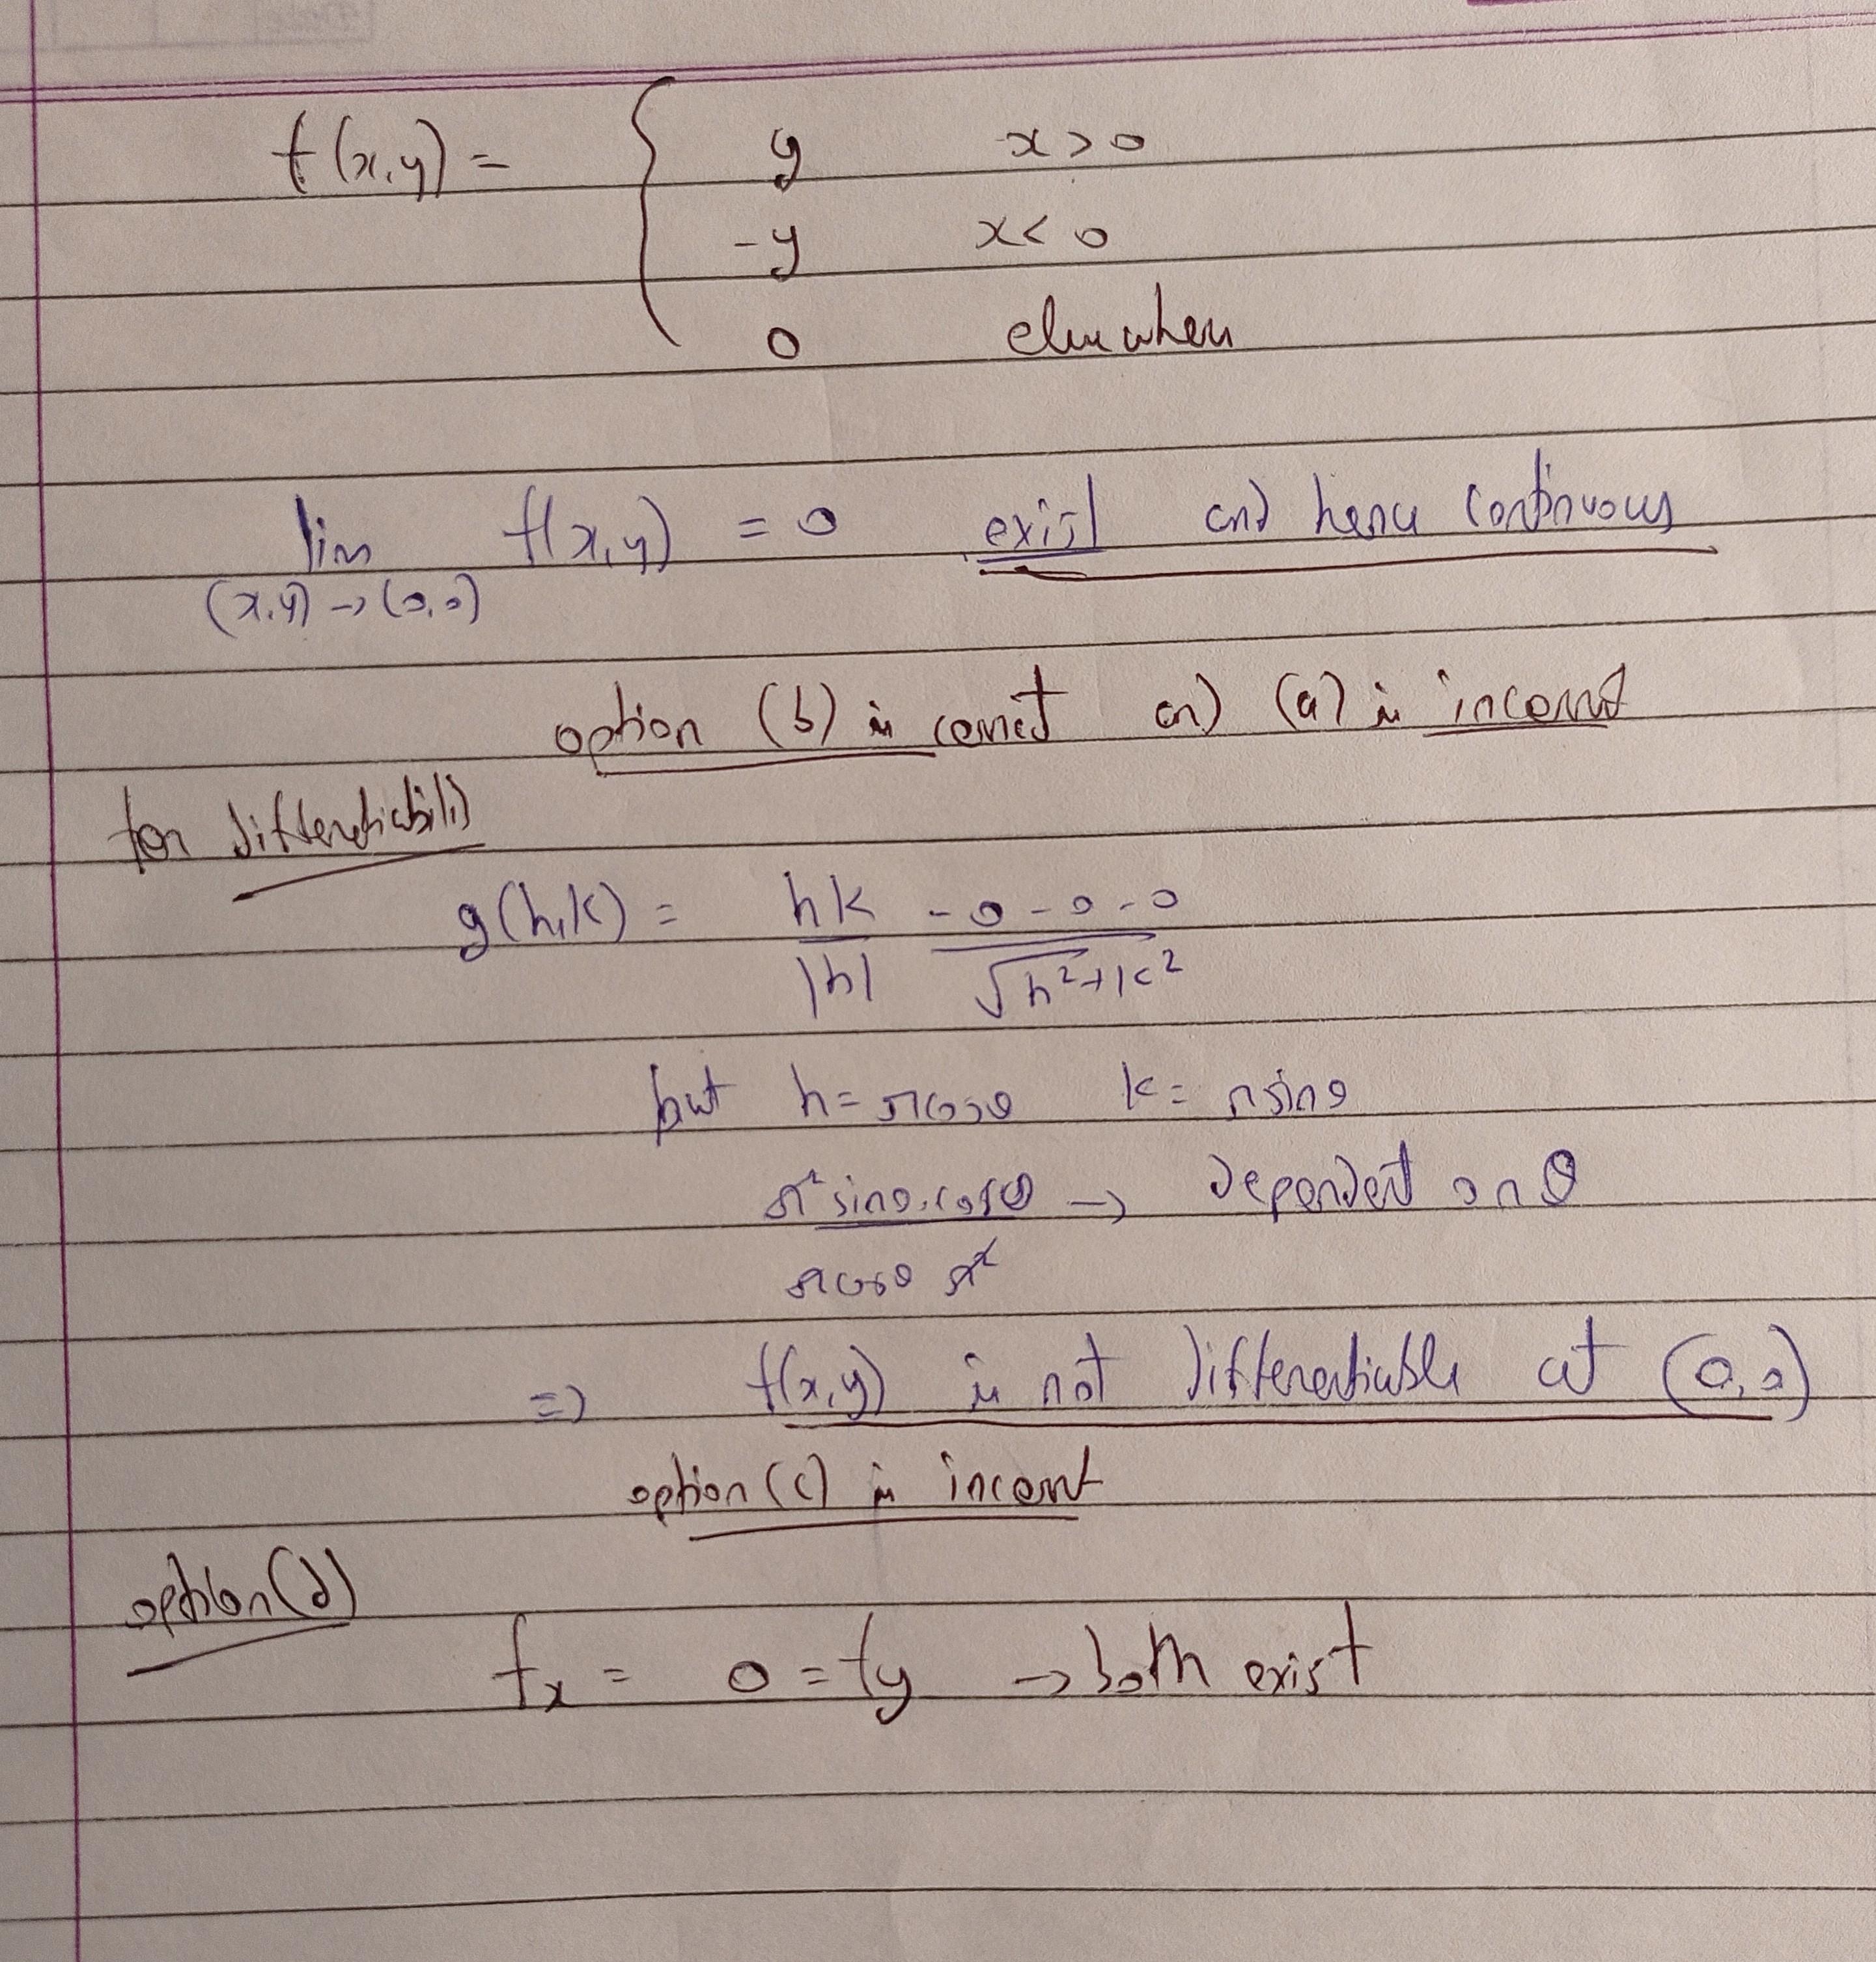 f(x,y) = { y x>0
-y x<0
0 elsewhere
lim f(x,y) = 0 exist and hence continuous
(x,y) → (0,0)
option (b) is correct and (a) is incorrect
for differentiability
g(h,k) = hk - 0 - 0 - 0
|h| √h²+k²
put h = r cosθ k = r sinθ
r² sinθ.cosθ → dependent on θ
r cosθ r²
⇒ f(x,y) is not differentiable at (0,0)
option (c) is incorrect
option (d)
fx = 0 = fy → both exist